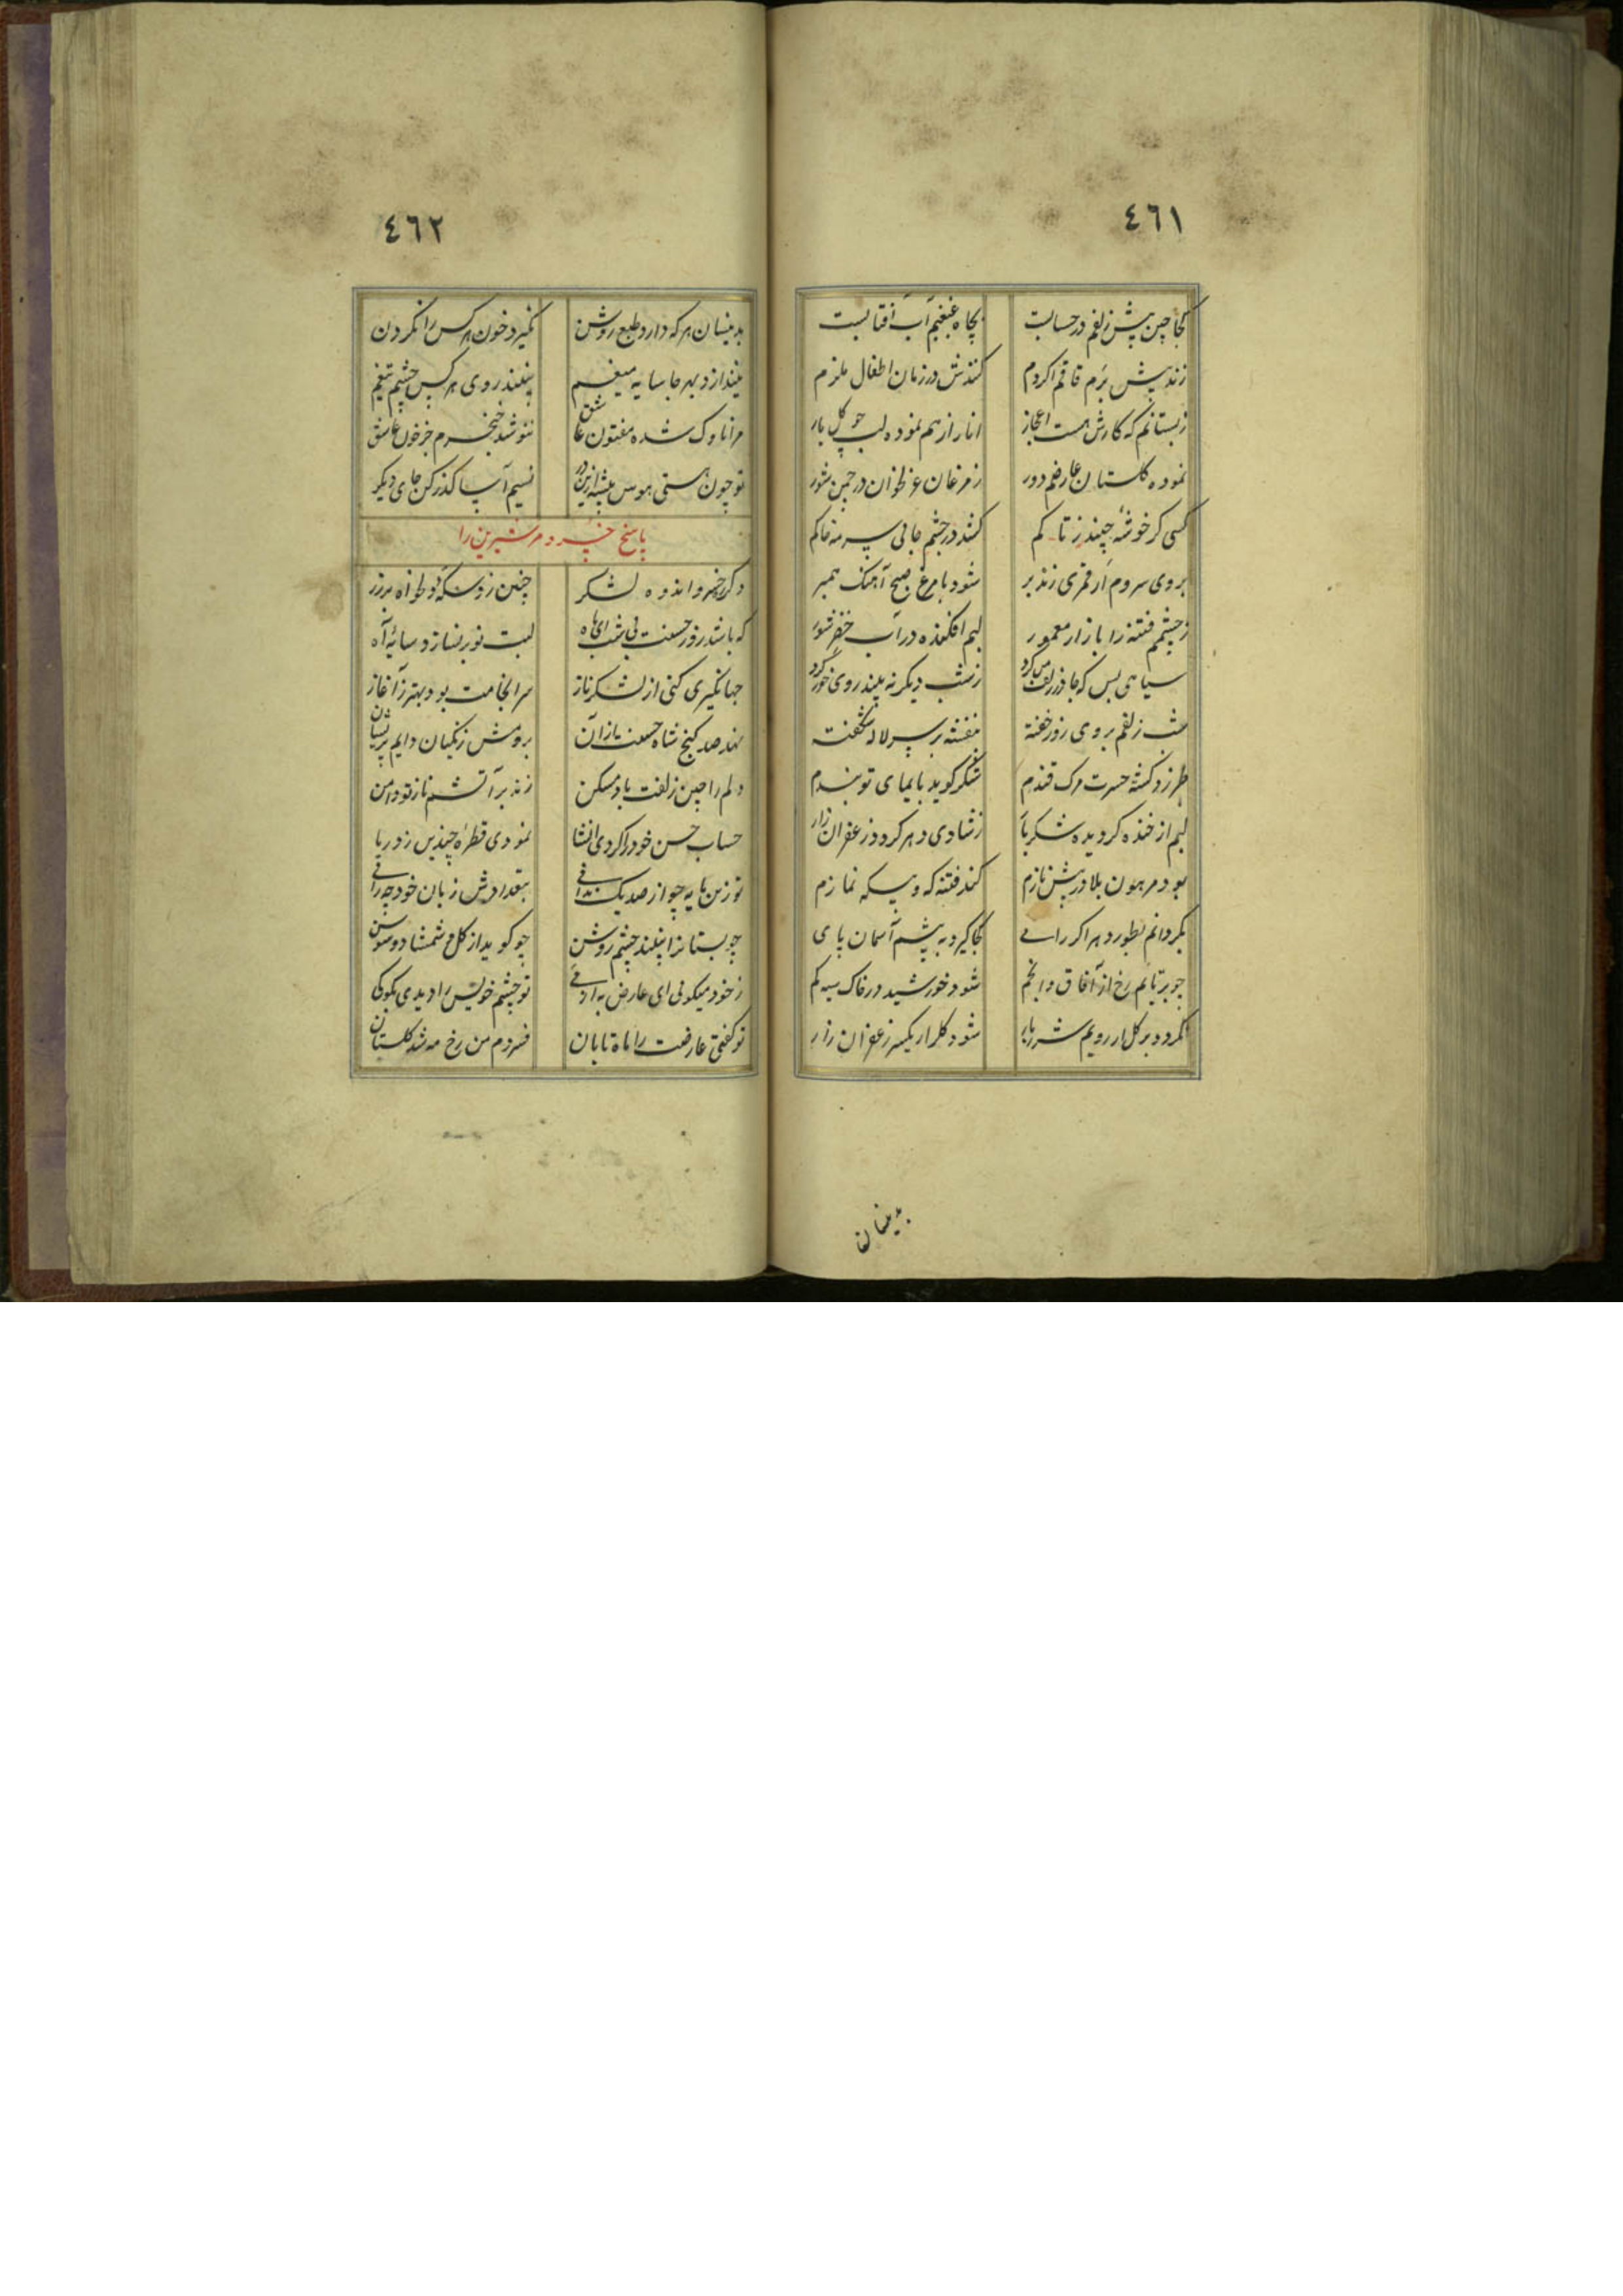 ٤٦١
کجا چین پیش زلفم در حسابست بچاه غبغبم آب آفتابست
زند پیش بَرَم قاقم اگر دم کنندش در زمان اطفال ملزم
ز بستانم که کارش هست اعجاز انار از هم نموده لب چو گل باز
نموده گلستان عارضم دور ز مرغان غزلخوان در چمن شور
کسی کز خوشه چیند ز تاکم کشد در چشم جانی سرمه خاکم
بروی سروم ار قمری زند پر شود با مرغ صبح آهنگ همبر
ز چشمم فتنه را بازار معمور لبم افکنده در آب خضر شور
سیاهی بس که جا در زلف من کرد ز شب دیگر نه بیند روی خور کرد
شب زلفم بروی روز خفته بنفشه بر سر لاله شگفته
طبرزد کشته حسرت مرگ قندم شکر گوید بایمای تو بندم
لبم از خنده گردیده شکربار ز شادی دهر گردد زعفران زار
بود مرهون بلا در پیش نازم کند فتنه که و بیگه نمازم
بگردانم بطور دهر اگر رای کجا گیرد به پشم آسمان پای
چو برتابم رخ از آفاق و انجم شود خورشید در خاک سیه گم
نگردد بر گل ار رویم شرربار شود گلزار یکسر زعفران زار
بدینسان
٤٦٢
بدینسان هر که دارد طبع روشن نگیرد خون هر کس را بگردن
نیندازد بهر جا سایه میغم نبیند روی هر کس چشم تیغم
مرا ناوک شده مفتون عاشق ننوشد خنجرم جز خون عاشق
تو چون هستی هوس پیشه ازین در نسیم آسا گذر کن جای دیگر
پاسخ خسرو مر شیرین را
دگر خسرو اندوه لشکر چنین زد سکه
که باشد روز حسنت بی شب ای ماه لبت نوبر نسازد سایه آه
جهانگیری کنی از لشکر ناز سرانجامت بود بهتر ز آغاز
نهد صد گنج شاه حسنت باز آن بروش زنگیان دایم پریشان
دلم را چین زلفت باد مسکن زند بر آتشم ناز تو دامن
حساب حسن خود را کردی انشا نمودی قطره چندین ز دریا
تو زین مایه چو از صد یک ندانی بتعدادش زبان خود چه رانی
چو بستانرا نبیند چشم روشن چه گوید از گل و شمشاد و سوسن
ز خود میگوئی ای عارض به از تو چشم خویش را دیدی نکوئی
تو گفتی عارضت را ماه تابان فسردم من رخ مه شد گلستان